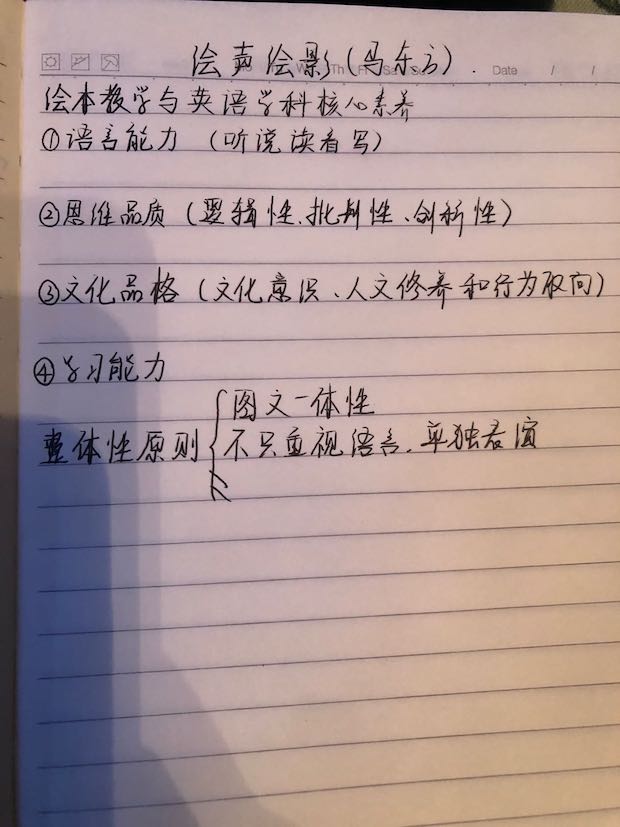 绘声绘影(马东方).
Th
Date / /
绘本教学与英语学科核心素养
①语言能力(听说读看写)
②思维品质(逻辑性、批判性、创新性)
③文化品格(文化意识、人文修养和行为取向)
④学习能力
图文一体性
整体性原则 不只重视语言,单独表演